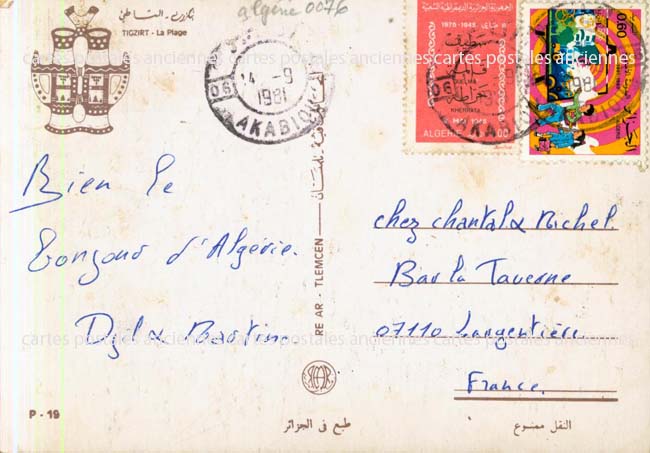 algérie 0076
تيگزيرت - الشاطئ
TIGZIRT - La Plage
(06)
14 -9
1981
AKABIOU
الجمهورية الجزائرية الديمقراطية الشعبية
1975 - 1945
سطيف
قالمة
خراطة
GUELMA
KHERRATA
ALGERIE
0,60
1981
Bien le
Bonjour d'Algérie.
Djil & Martine
RE AR - TLEMCEN
chez chantal & Michel.
Bar la Taverne
07110 Largentière
France
cartes postales anciennes cartes postales anciennes cartes postales anciennes
cartes postales anciennes cartes postales anciennes cartes postales anciennes
P - 19
طبع في الجزائر
النقل ممنوع